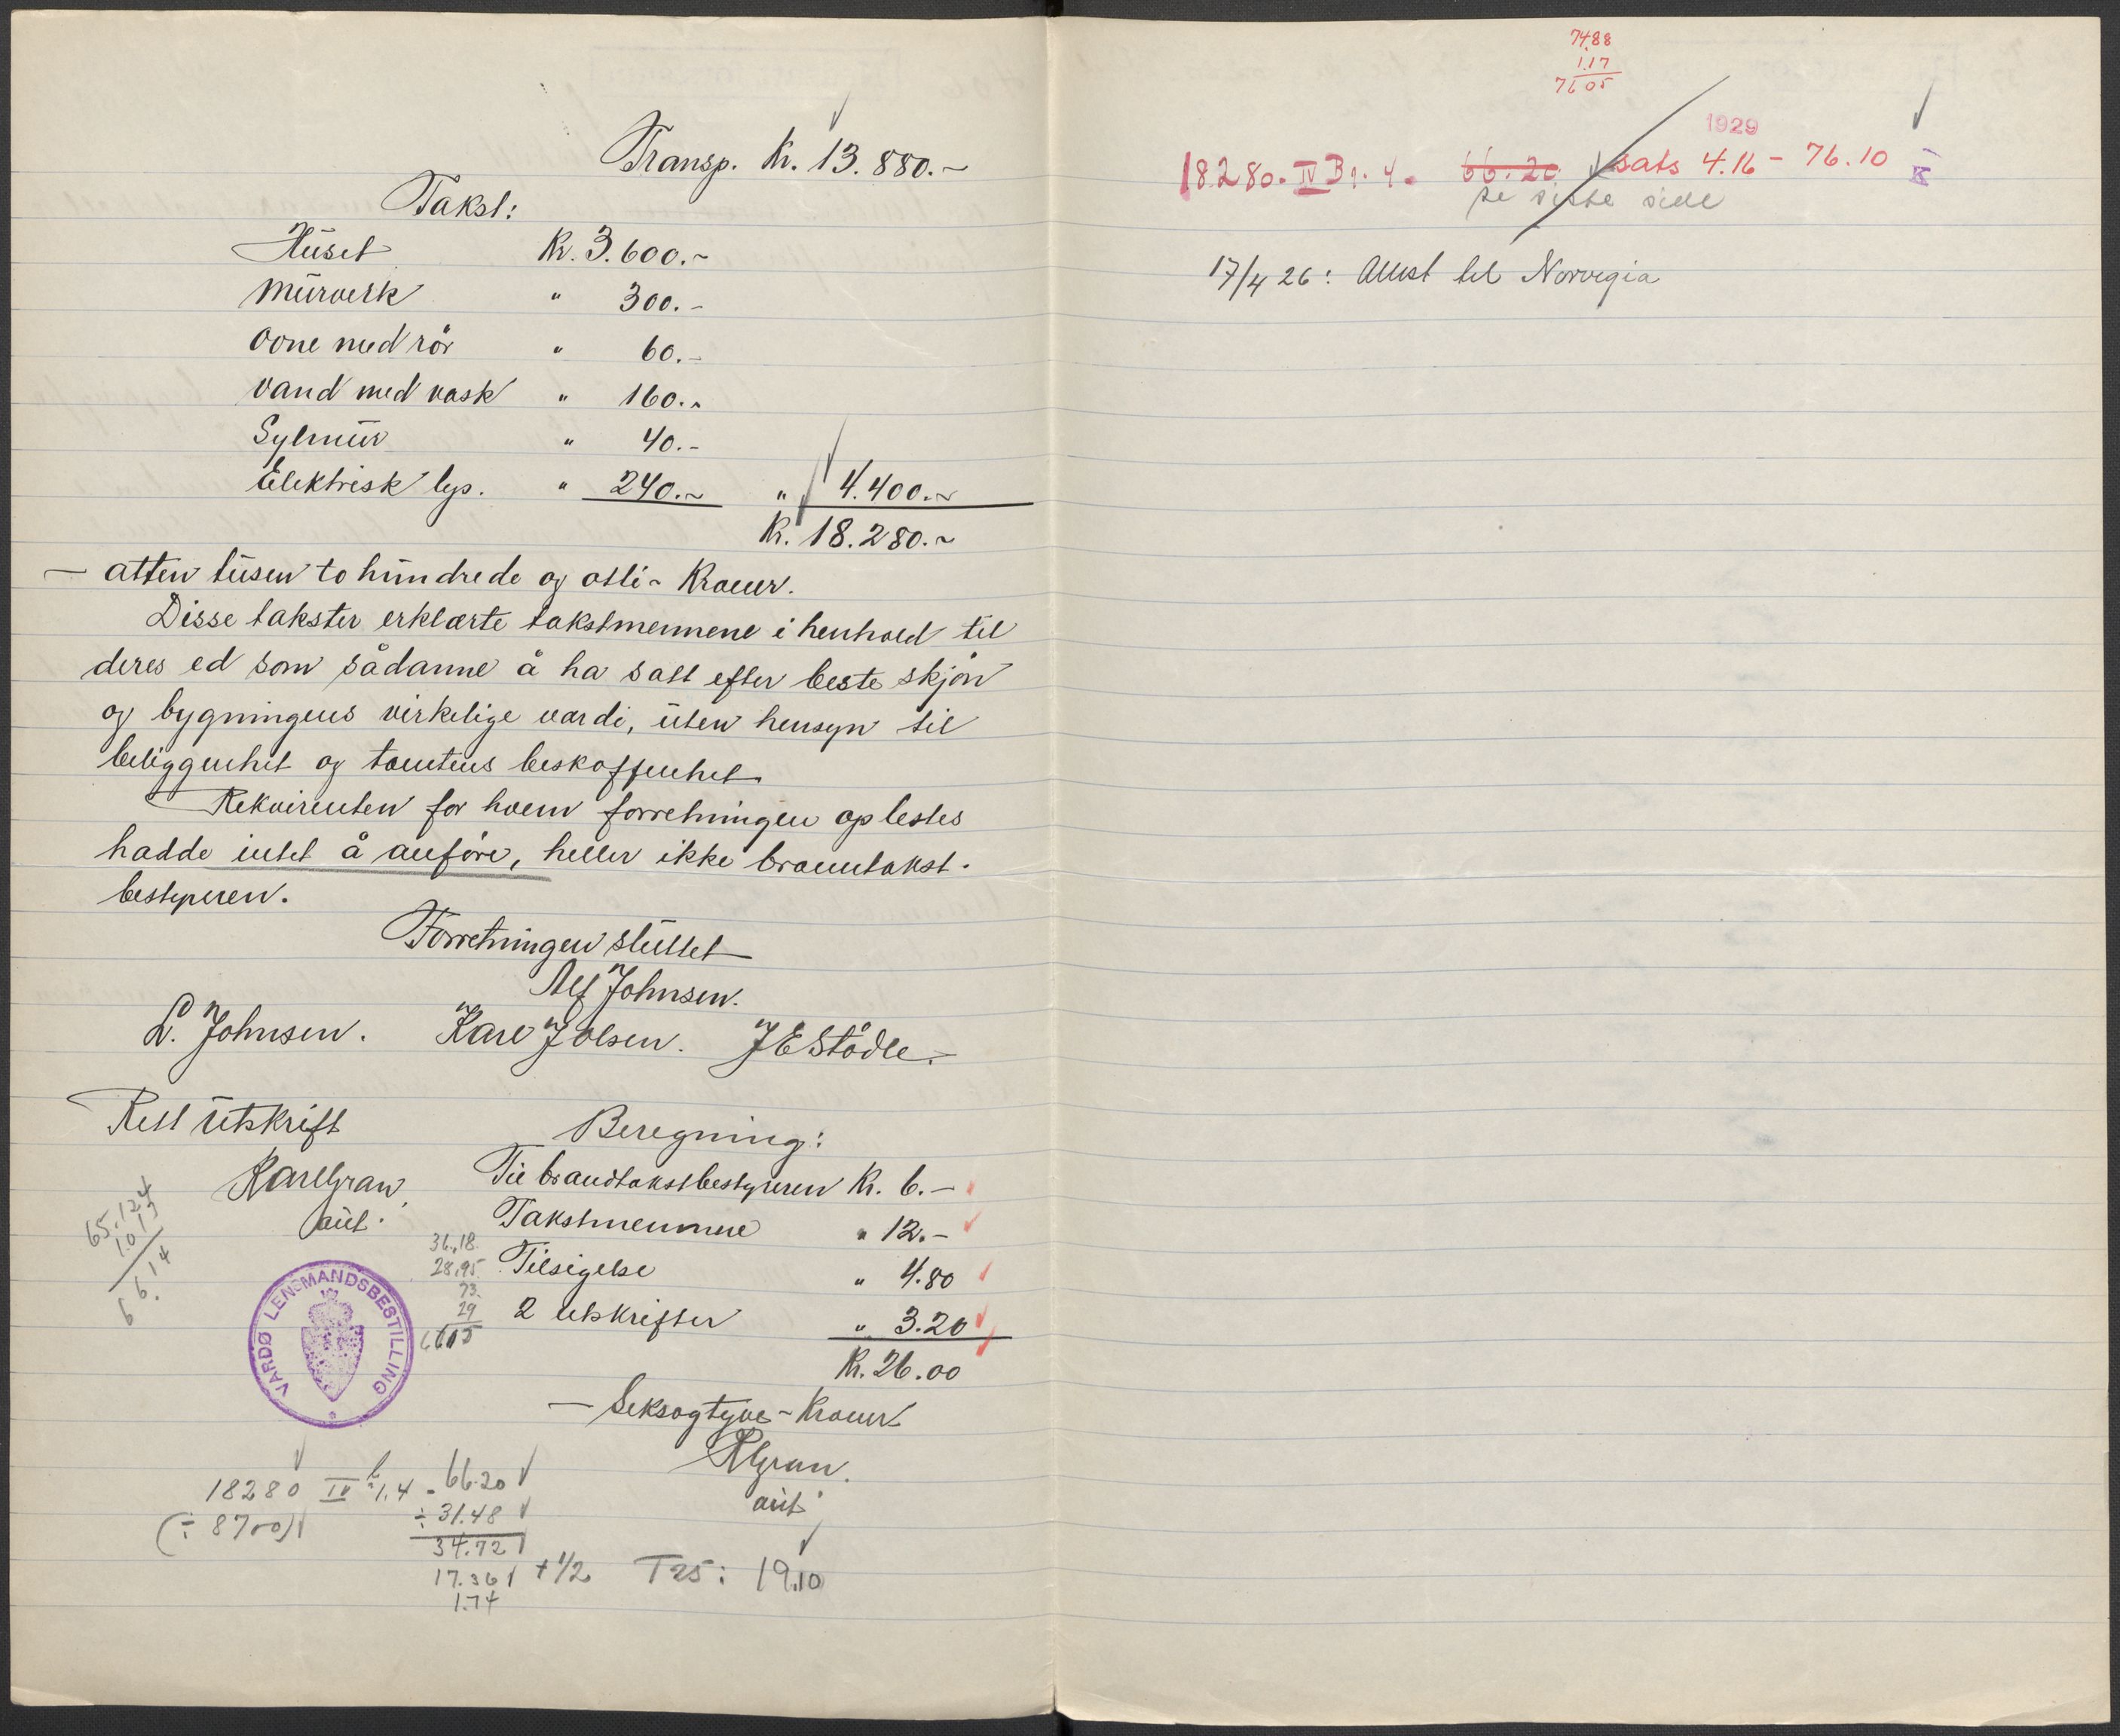 Transp. Kr. 13.880.-
Takst:
Huset Kr. 3.600.-
Mürverk " 300.-
Ovne med rör " 60.-
Vand med vask " 160.-
Sylmür " 40.-
Elektrisk lys. " 240.- " 4.400.-
Kr. 18.280.-
- atten tüsen to hündrede og otti - Kroner.
Disse takster erklærte takstmennene i henhold til
deres ed som sådanne å ha satt efter beste skjön
og bygningens virkelige værdi, üten hensyn til
beliggenhet og tomtens beskaffenhet.
Rekvirenten for hvem forretningen oplestes
hadde intet å anföre, heller ikke branntakst-
bestyreren.
Forretningen slüttet
Alf Johnsen.
L. Johnsen. Karl J Olsen. J E Stödle.
Rett ütskrift
Karl Gran
aüt.
Beregning:
Til brandtakstbestyreren Kr. 6.-
Takstmennene " 12.-
Tilsigelse " 4.80
2 utskrifter " 3.20
Kr. 26.00
- Seksogtyve - Kroner
K Gran.
aüt
65.124
1.013
66.14
36.18
28.95
73
29
6615
VARDØ LENSMANDSBESTILLING
18280 IV b 1.4 - 66.20
(÷ 8700) ÷ 31.48
34.72
17.36 + 1/2 T 25: 19.10
1.74
7488
1.17
7605
1929
18280. IV B 1. 4. 66.20 sats 4.16 - 76.10
se siste side
17/4 26: Attest til Norvegia